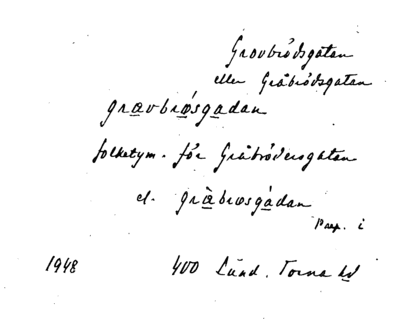 Grovbrödsgatan
eller Gråbrödsgatan
grævbrǿsgadan
folketym. för Gråbrödersgatan
el. græ̀brøsgádan
Prep. i
1948 400 Lund. Torna hd